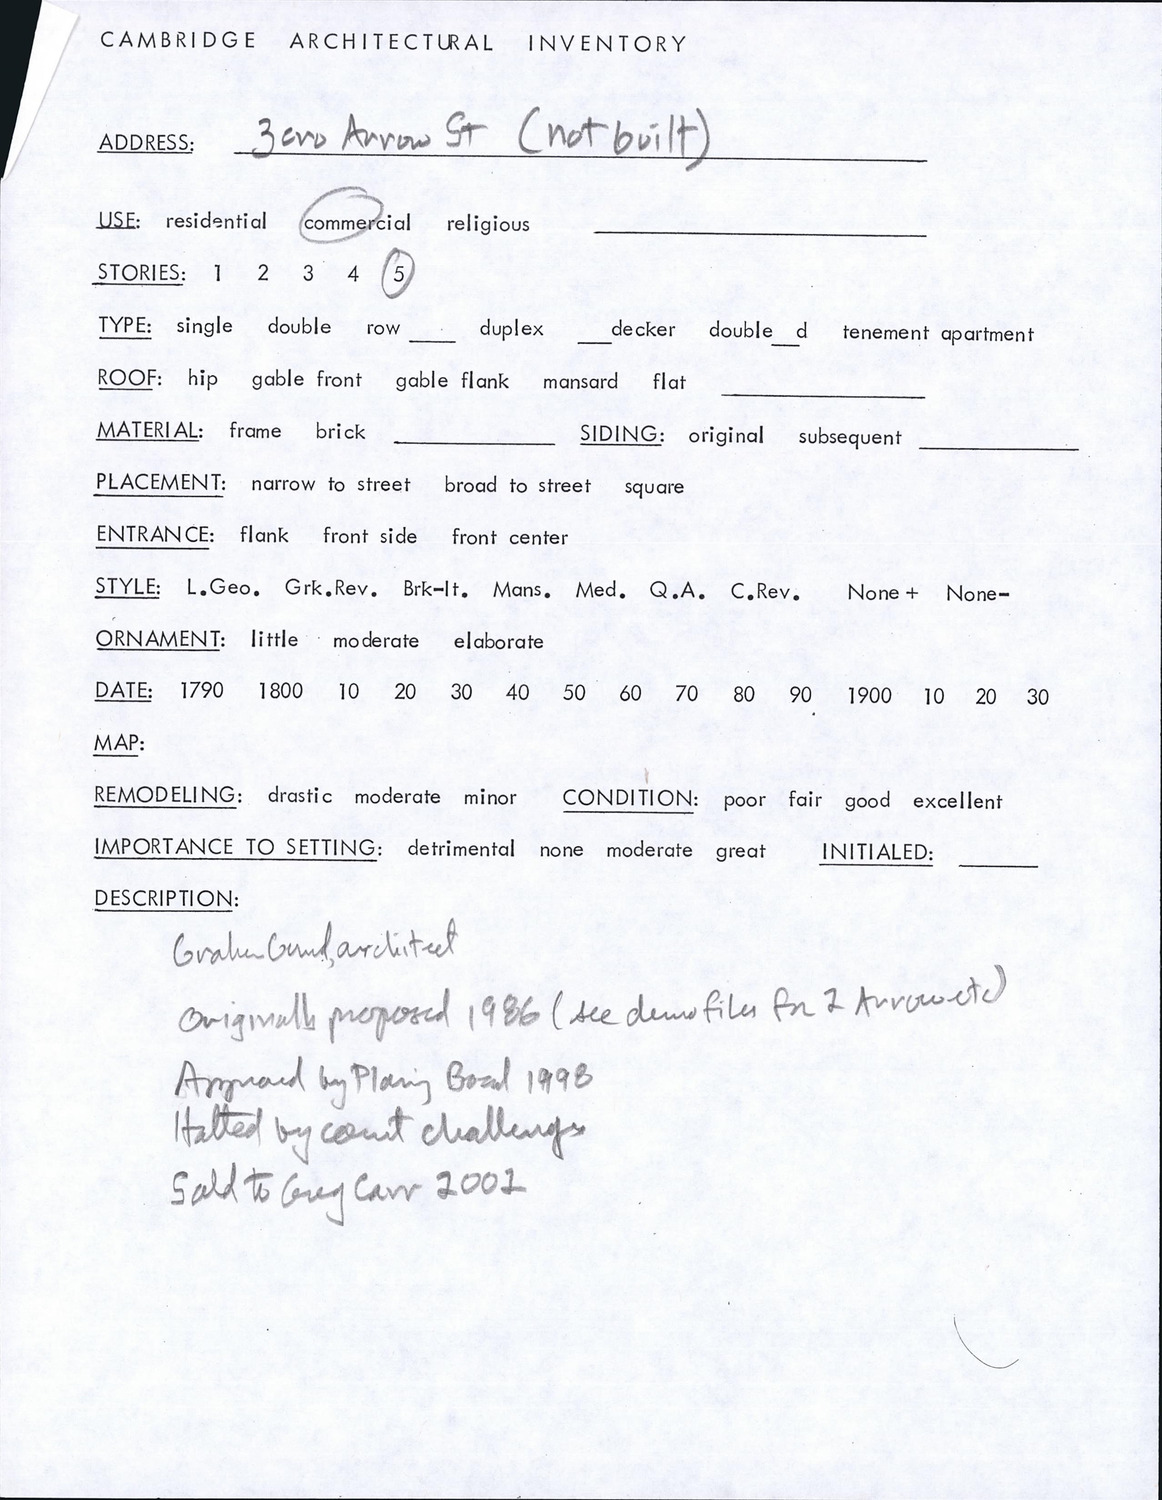 CAMBRIDGE ARCHITECTURAL INVENTORY
ADDRESS: Zero Arrow St (not built)
USE: residential commercial religious
STORIES: 1 2 3 4 5
TYPE: single double row ___ duplex ___decker double__d tenement apartment
ROOF: hip gable front gable flank mansard flat
MATERIAL: frame brick ___ SIDING: original subsequent ___
PLACEMENT: narrow to street broad to street square
ENTRANCE: flank front side front center
STYLE: L.Geo. Grk.Rev. Brk-It. Mans. Med. Q.A. C.Rev. None+ None-
ORNAMENT: little moderate elaborate
DATE: 1790 1800 10 20 30 40 50 60 70 80 90 1900 10 20 30
MAP:
REMODELING: drastic moderate minor CONDITION: poor fair good excellent
IMPORTANCE TO SETTING: detrimental none moderate great INITIALED: ___
DESCRIPTION:
Graham Gund, architect
Originally proposed 1986 (see demo files for 2 Arrow etc)
Approved by Planning Board 1998
Halted by court challenges
Sold to Greg Carr 2002